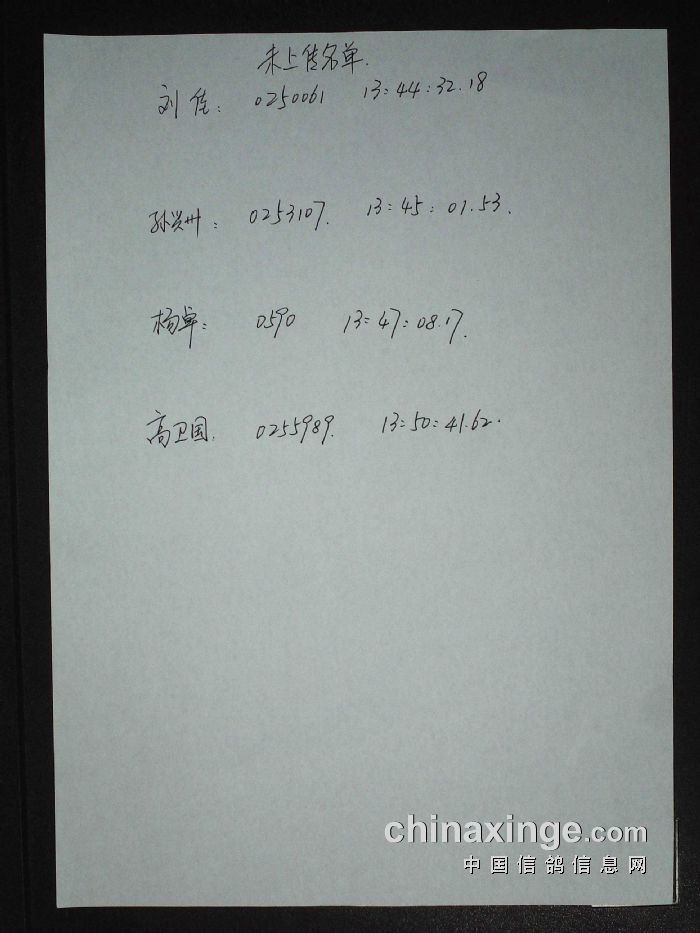 未上传名单.
刘佳: 0250061 13:44:32.18
孙兴州: 0253107. 13:45:01.53.
杨卓: 0590 13:47:08.17.
高卫国. 0255989. 13:50:41.62.
chinaxinge.com
中国信鸽信息网